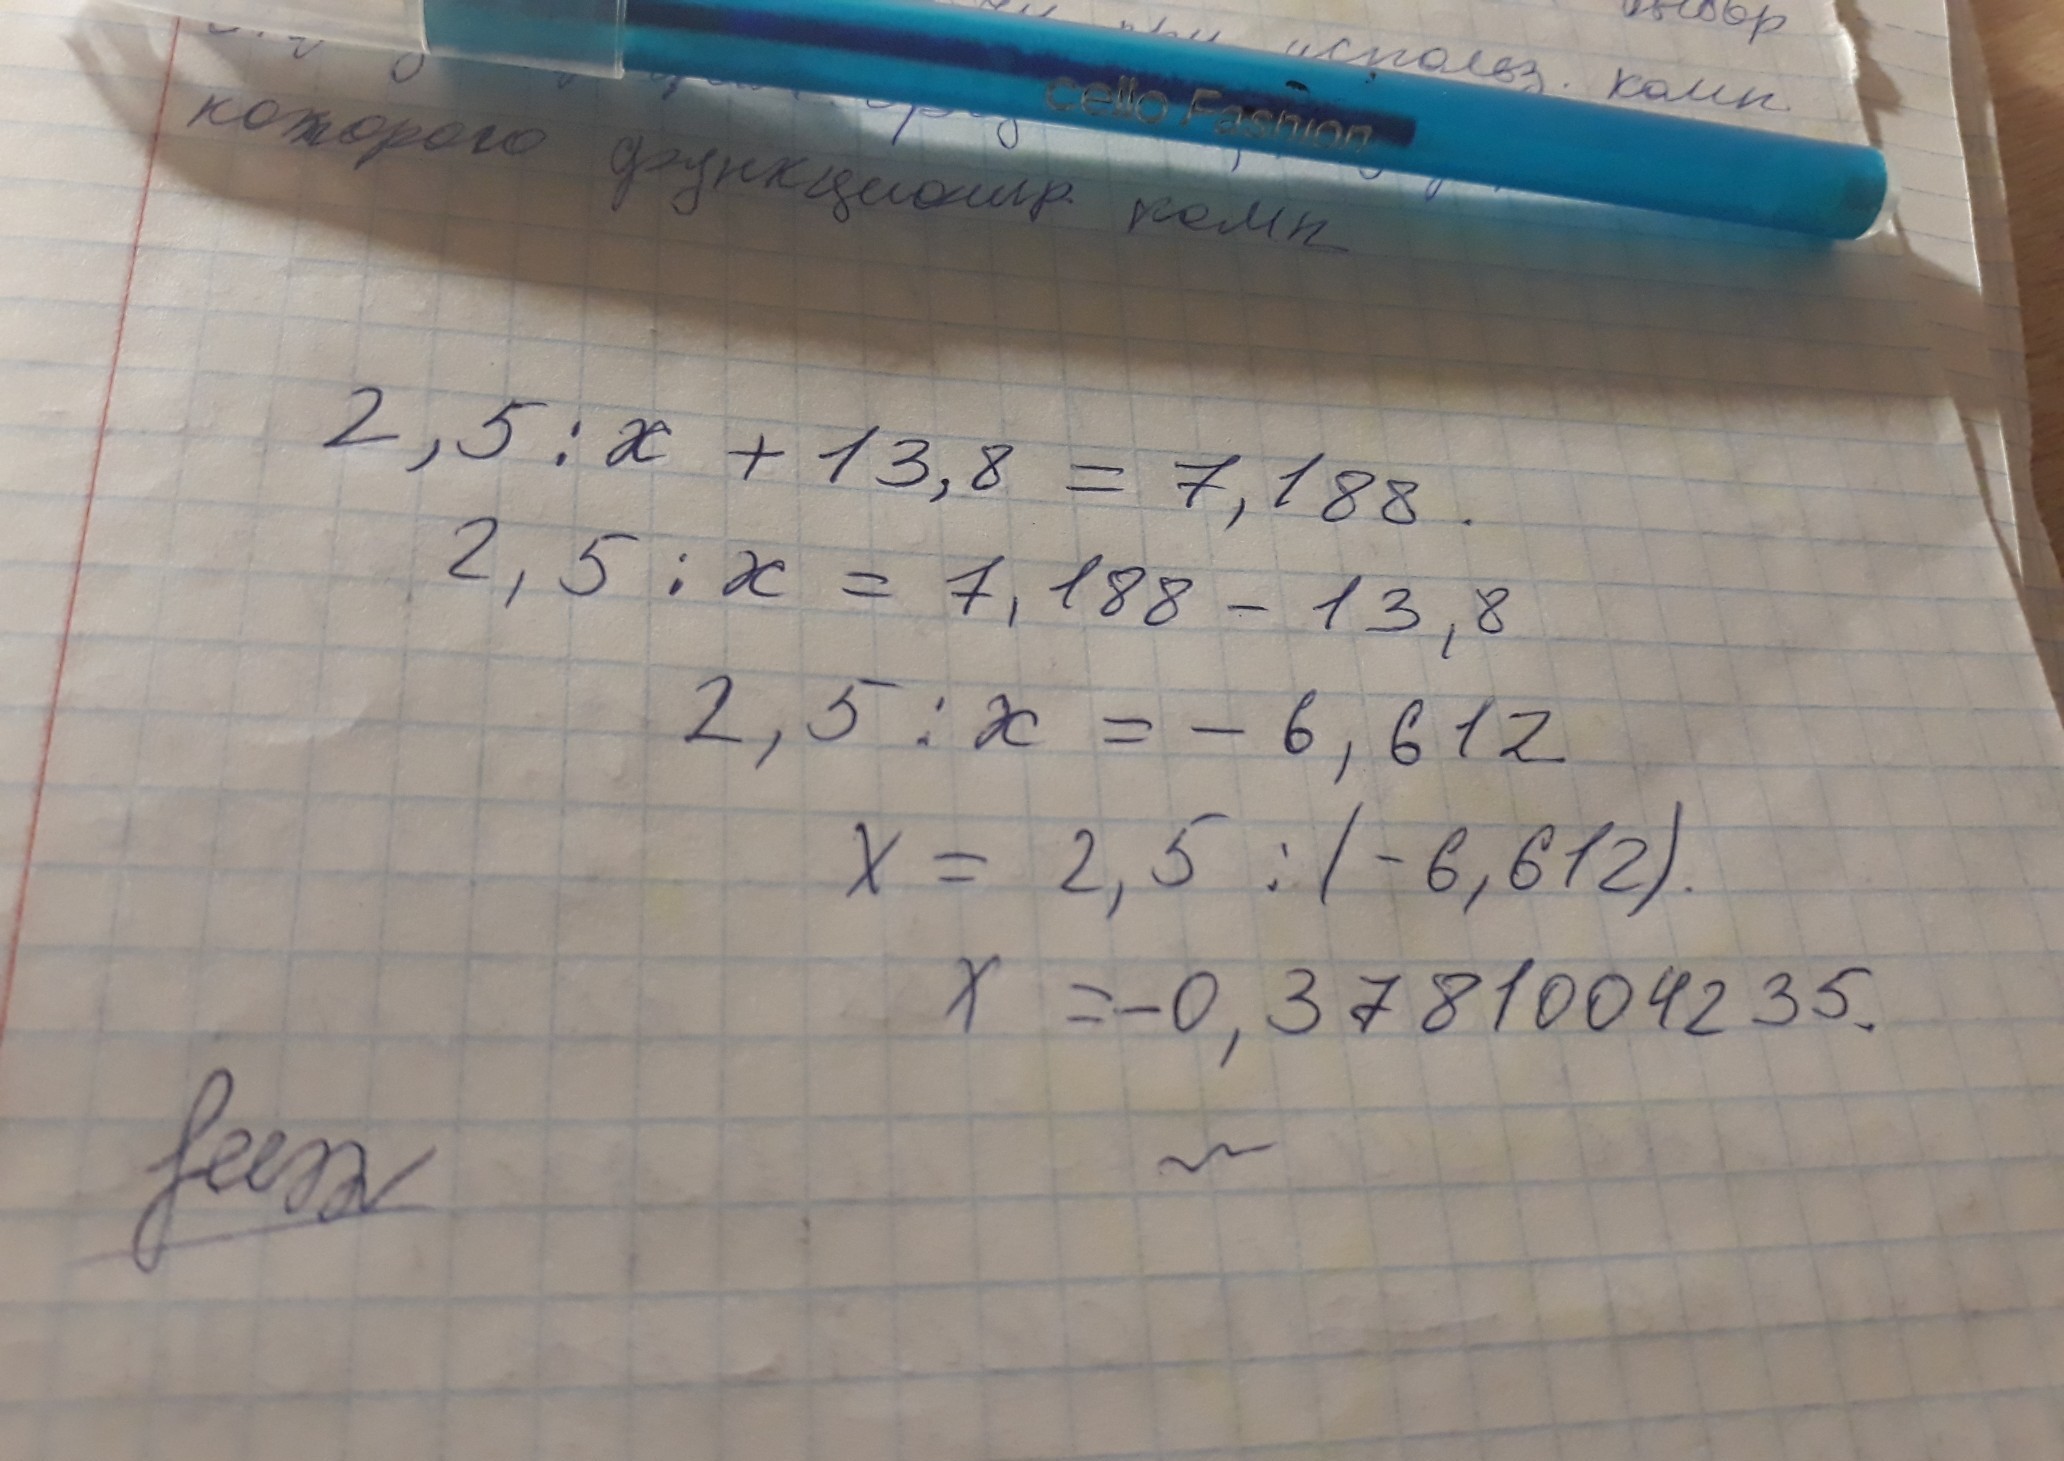 использ. комп.
cello Fashion
которого функционир. комп
2,5 : x + 13,8 = 7,188.
2,5 : x = 7,188 - 13,8
2,5 : x = - 6,612
x = 2,5 : (-6,612).
x = -0,3781004235.